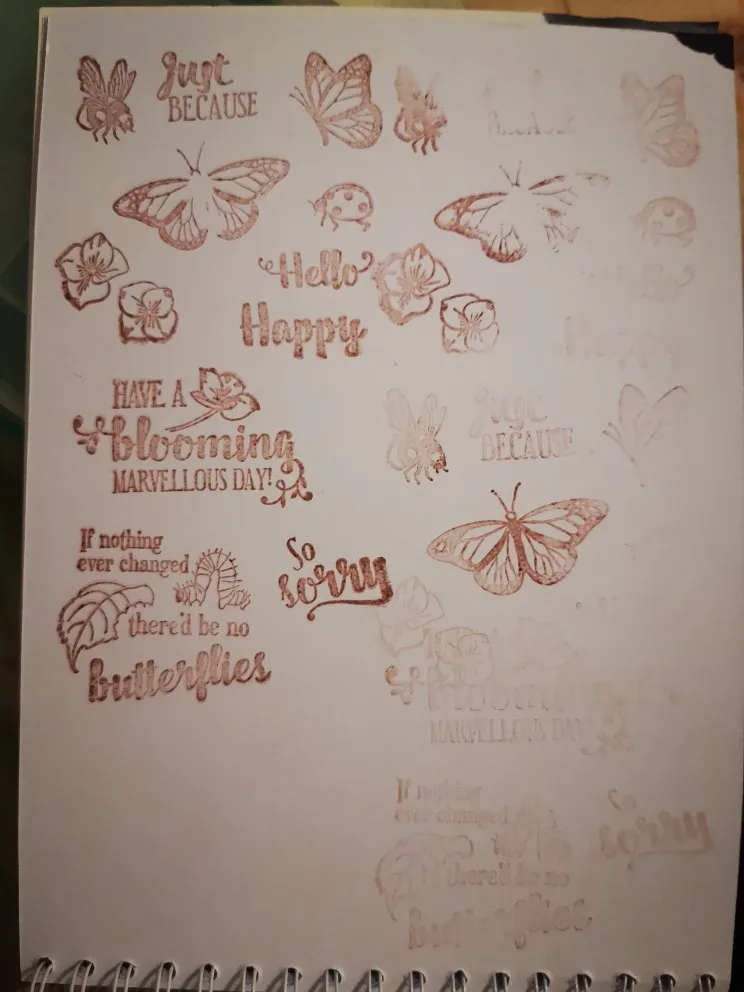 Just
BECAUSE
BECAUSE
Hello
Hello
Happy
Happy
HAVE A
blooming
MARVELLOUS DAY!
Just
BECAUSE
If nothing
ever changed
there'd be no
butterflies
So
sorry
blooming
MARVELLOUS DAY!
If nothing
ever changed
there'd be no
butterflies
So
sorry